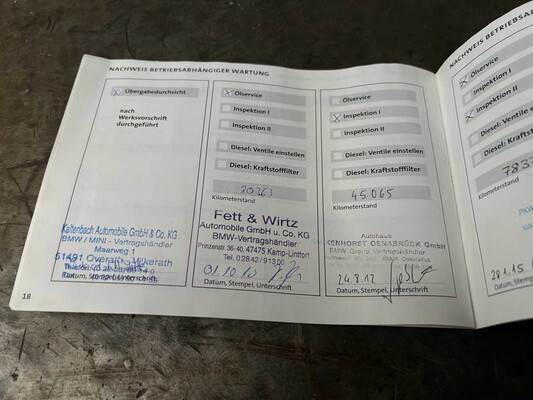 NACHWEIS BETRIEBSABHÄNGIGER WARTUNG
Übergabedurchsicht
nach
Werksvorschrift
durchgeführt
Kaltenbach Automobile GmbH & Co. KG
BMW / MINI - Vertragshändler
Maarweg 1
51491 Overath - Vilkerath
Datum, Stempel, Unterschrift
18
Ölservice
Inspektion I
Inspektion II
Diesel: Ventile einstellen
Diesel: Kraftstofffilter
20263
Kilometerstand
Fett & Wirtz
Automobile GmbH u. Co. KG
BMW-Vertragshändler
Prinzenstr. 36-40, 47475 Kamp-Lintfort
Tel. 0 28 42 / 913 00
01.10.10
Datum, Stempel, Unterschrift
Ölservice
Inspektion I
Inspektion II
Diesel: Ventile einstellen
Diesel: Kraftstofffilter
45.065
Kilometerstand
Autohaus
OSNABRÜCK GmbH
BMW Group Vertragshändler
24.8.12
Datum, Stempel, Unterschrift
NACHWEIS BETRIEBSA
Ölservice
Inspektion I
Inspektion II
Diesel: Ventile
Diesel: Kraftst
783
Kilometerstand
PKW
28.1.15
Datum, Stempe